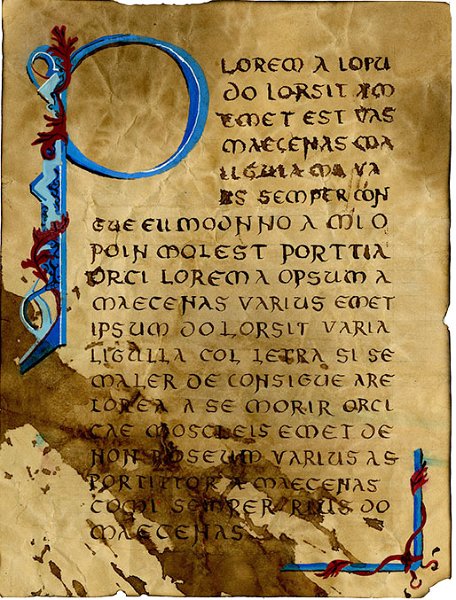 P LOREM A LOPU
DO LORSIT AM
EMET EST VAS
MAECENAS MA
LIGULA MA VA
RS SEMPER CON
GUE EU MODNNO A MI O
POIN MOLEST PORTTIA
ORCI LOREM A OPSUM A
MAECENAS VARIUS EMET
IPSUM DOLORSIT VARIA
LIGULLA COL LETRA SI SE
MALER DE CONSIGUE ARE
LOREA A SE MORIR ORCI
CAE MOSCLEIS EMET DE
NON POSEUM VARIUS AS
PORTITTOR A MAECENAS
COMI SEMPER RIUS DO
MAECENAS